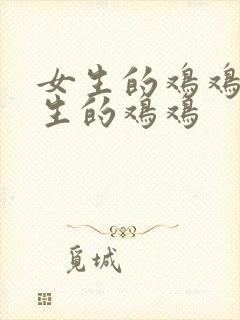 女生的鸡鸡
生的鸡鸡
觅城